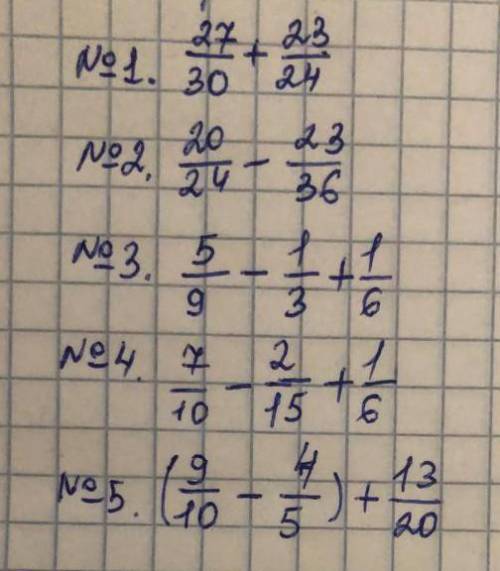 №1. 27/30 + 23/24
№2. 20/24 - 23/36
№3. 5/9 - 1/3 + 1/6
№4. 7/10 - 2/15 + 1/6
№5. (9/10 - 4/5) + 13/20